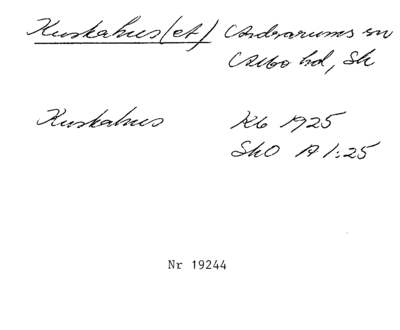 Kuskahus(et) Andrarums sn
Albo hd, Sk
Kuskahus Kb 1925
SkO A 1:25
Nr 19244